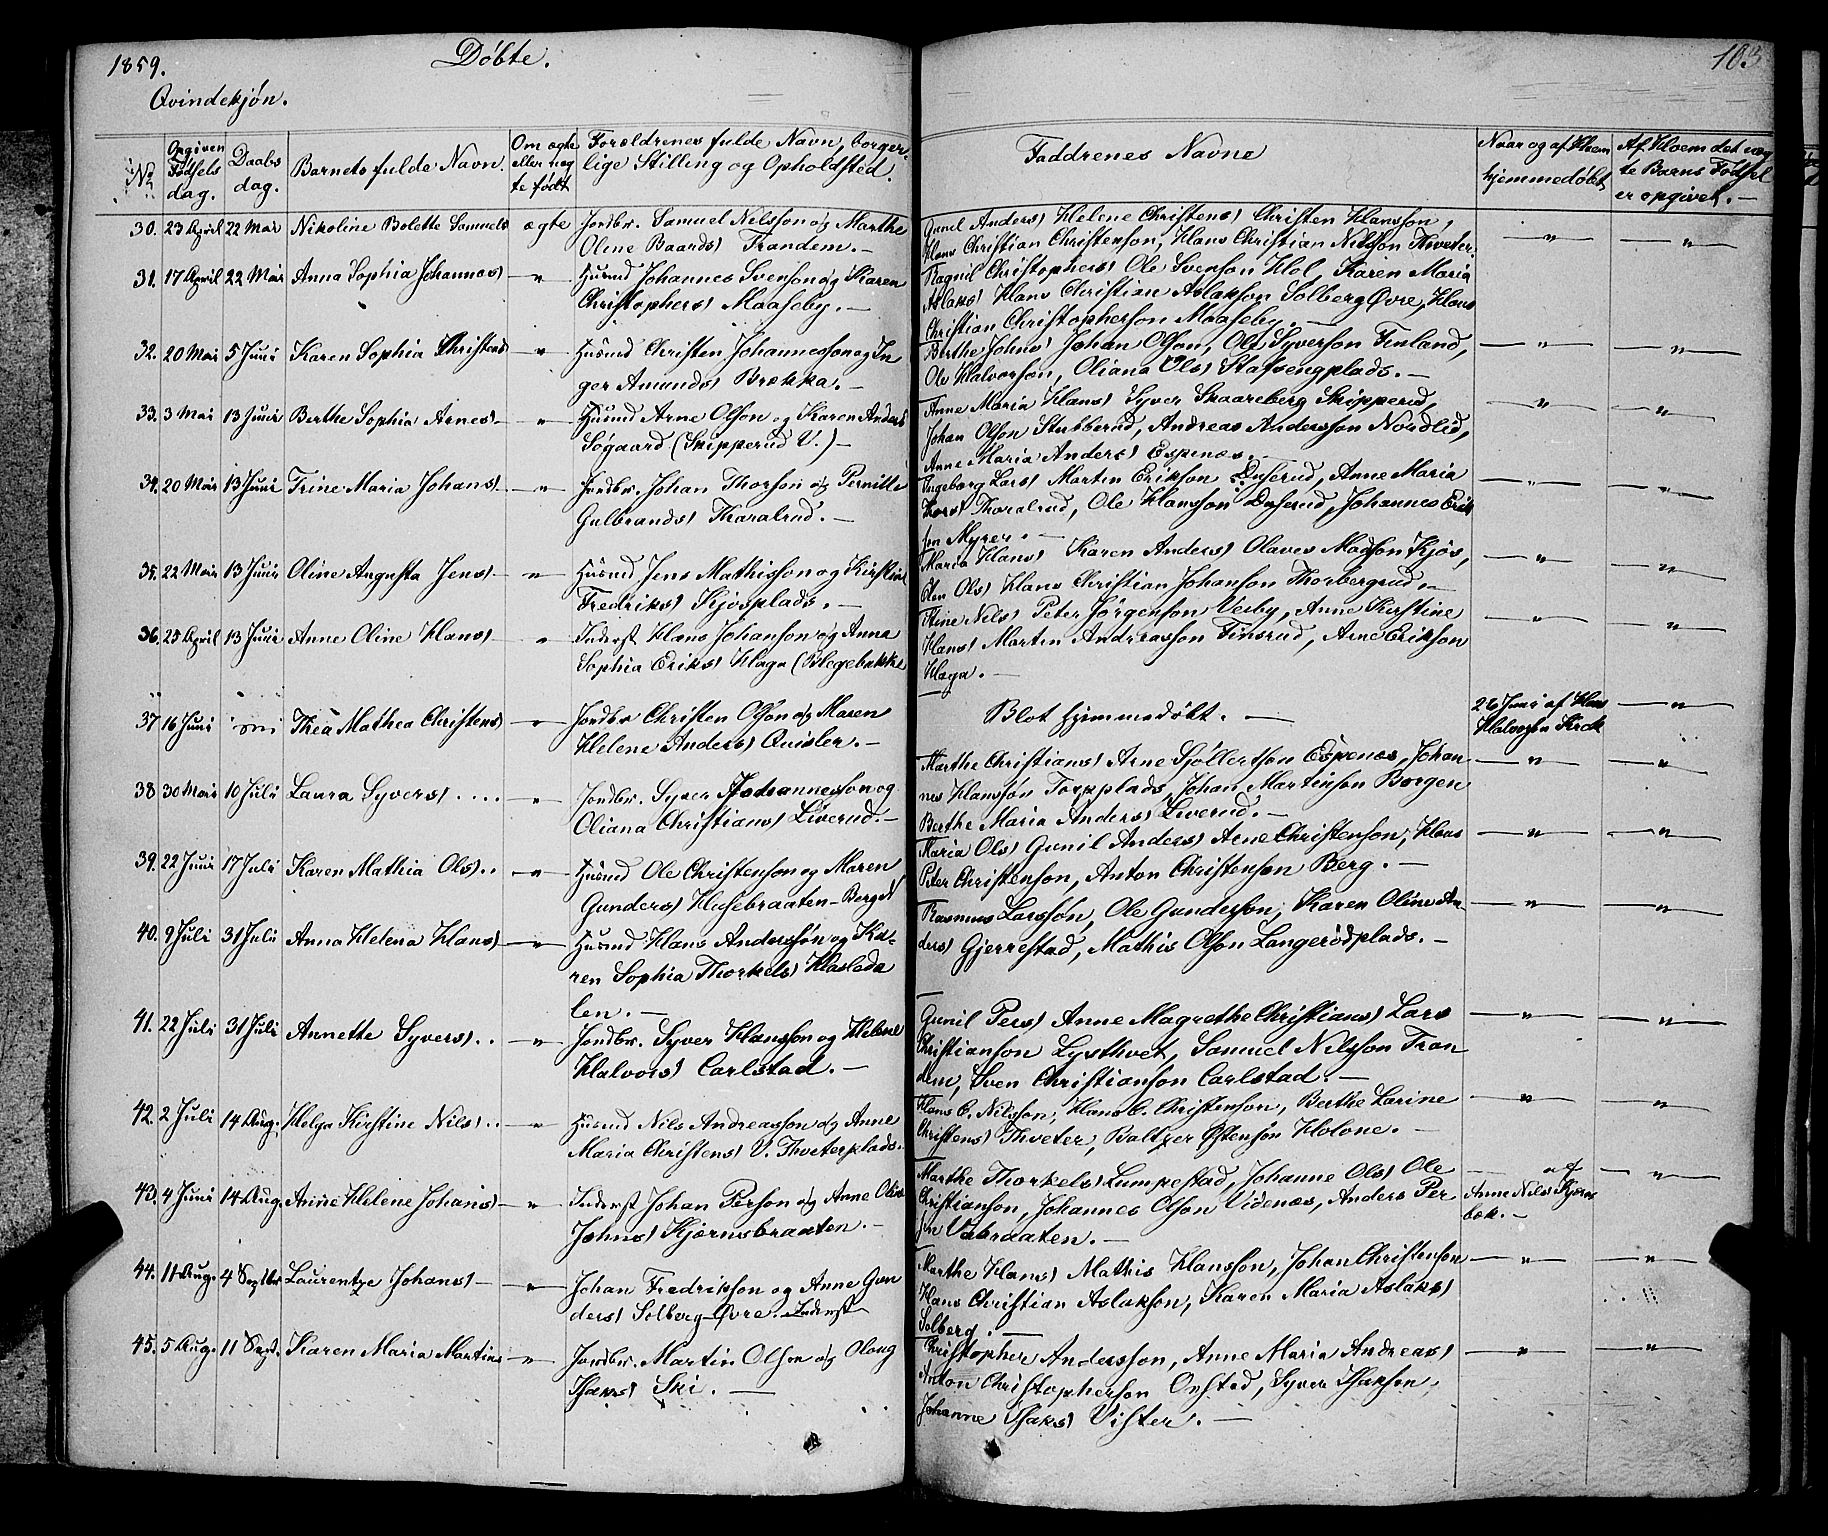 1859. Döbte. 103
Qvindekjön.
No
Opgiven Födsels dag.
Daabs dag.
Barnets fulde Navn.
Om ægte eller uæg te födt
Forældrenes fulde Navn, borger-
lige Stilling og Opholdsted.
Faddrenes Navne
Naar og af Hvem
hjemmedöbt
Af Hvem det uæg
te Barns Födsel
er opgivet. —
30. 23 April 22 Mai Nikoline Bolette Samuels ægte Jordbr. Samuel Nilsson og Marthe
Oline Baards) Trandem. —
Gunil Anders) Helene Christens) Christen Hansson,
Hans Christian Christenson, Hans Christian Nilsson Thveter.
— " — — " —
31. 17 April 22 Mai Anna Sophia Johannes) — " — Husmd Johannes Svenson og Karen
Christophers) Maaseby. —
Ragnil Christophers) Ole Svenson Hol, Karen Maria
Aslaks) Hans Christian Aslakson Solberg Övre, Hans
Christian Christopherson Maaseby. —
32. 20 Mai 5 Juni Karen Sophia Christens) — " — Husmd Christen Johannesson og In
ger Amunds) Brækka. —
Berthe Johns) Johan Olson, Ole Syverson Finland,
Ole Halvorson, Oliana Ols) Stafsengplads. —
— " — — " —
33. 3 Mai 13 Juni Berthe Sophia Arnes) — " — Husmd Arne Olson og Karen Anders)
Sögaard (Skipperud V.) —
Anne Maria Hans) Syver Skaareberg Skipperud,
Johan Olson Stubberud, Andreas Andersson Nordlid,
Anne Maria Anders) Espenæs. —
— " — — " —
34. 20 Mai 13 Juni Trine Maria Johans) — " — Jordbr. Johan Thorson og Pernille
Gulbrands) Tharalrud. —
Ingeborg Lars) Martin Erikson Duserud, Anne Maria
Thors) Thoralrud, Ole Hansson Duserud, Johannes Erik
son Myrer. —
— " — — " —
35. 22 Mai 13 Juni Oline Augusta Jens) — " — Husmd Jens Mathisson og Kirstine
Fredriks) Kjösplads. —
Maria Hans) Karen Anders) Olaves Madson Kjös,
Elen Ols) Hans Christian Johanson Thorbergrud. —
— " — — " —
36. 25 April 13 Juni Anne Oline Hans) — " — Inderst Hans Johanson og Anna
Sophia Eriks) Haga (Blegebakke
Stine Nils) Peter Jörgenson Vesby, Anne Kirstine
Hans) Martin Andreasson Finsrud, Arne Erikson
Haga. —
— " — — " —
37 16 Juni Thea Mathea Christens) — " — Jordbr. Christen Olson og Maren
Helene Anders) Quisler. —
Blot hjemmedöbt. —
26 Juni af Hans
Halvorsen Kirck
— " —
38 30 Mai 10 Juli Laura Syvers) .... — " — Jordbr. Syver Johannesson og
Oliana Christians) Liverud. —
Marthe Christians) Arne Sjöllertson Espenæs, Johan
nes Hansson Torpplads, Johan Martinson Borgen
Berthe Maria Anders) Liverud. —
— " — — " —
39. 22 Juni 17 Juli Karen Mathia Ols) .. — " — Husmd Ole Christenson og Maren
Gunders) Husebraaten-Berget
Maria Ols) Gunil Anders) Arne Christenson, Hans
Peter Christenson, Anton Christenson Berg. —
— " — — " —
40. 9 Juli 31 Juli Anna Helena Hans) — " — Husmd Hans Andersson og Ka-
ren Sophia Thorkels) Hasleda
len. —
Rasmus Larsson, Ole Gunderson, Karen Oline An
ders) Gjerrestad, Mathis Olson Langerödplads. —
— " — — " —
41. 22 Juli 31 Juli Annette Syvers) .. — " — Jordbr. Syver Hansson og Helene
Halvors) Carlstad. —
Gunil Pers) Anne Magrethe Christians) Lars
Christianson Lysthvet, Samuel Nilsson Tran
dem, Sven Christianson Carlstad. —
— " — — " —
42. 2 Juli 14 Aug. Helga Kirstine Nils) .. — " — Husmd Nils Andreasson og Anne
Maria Christens) V. Thveterplads. —
Hans C. Nilsson, Hans C. Christenson, Berthe Larine
Christens) Thveter, Baltzer Östenson Holone. —
— " — — " —
43. 4 Juni 14 Aug. Anne Helene Johans) — " — Inderst Johan Person og Anne Olive
Johns) Kjærnsbraaten. —
Marthe Thorkels) Lumpestad, Johanne Ols) Ole
Christianson, Johannes Olson Videnæs, Anders Per
son Vabraaten. —
— af
Anne Nils) Kjærns
bæk. —
— " —
44. 11 Aug. 4 Septbr Laurentze Johans) — " — Johan Fredrikson og Anne Gun
ders) Solberg-Övre. Inderst
Marthe Hans) Mathis Hansson, Johan Christenson
Hans Christian Aslakson, Karen Maria Aslaks)
Solberg. —
— " — — " —
45. 5 Aug. 11 Sept. Karen Maria Martins) — " — Jordbr. Martin Olsen og Olaug
Isaks) Ski. —
Christopher Andersson, Anne Maria Andreas)
Anton Christopherson Onstad, Syver Isakson,
Johanne Isaks) Vister. —
— " — — " —